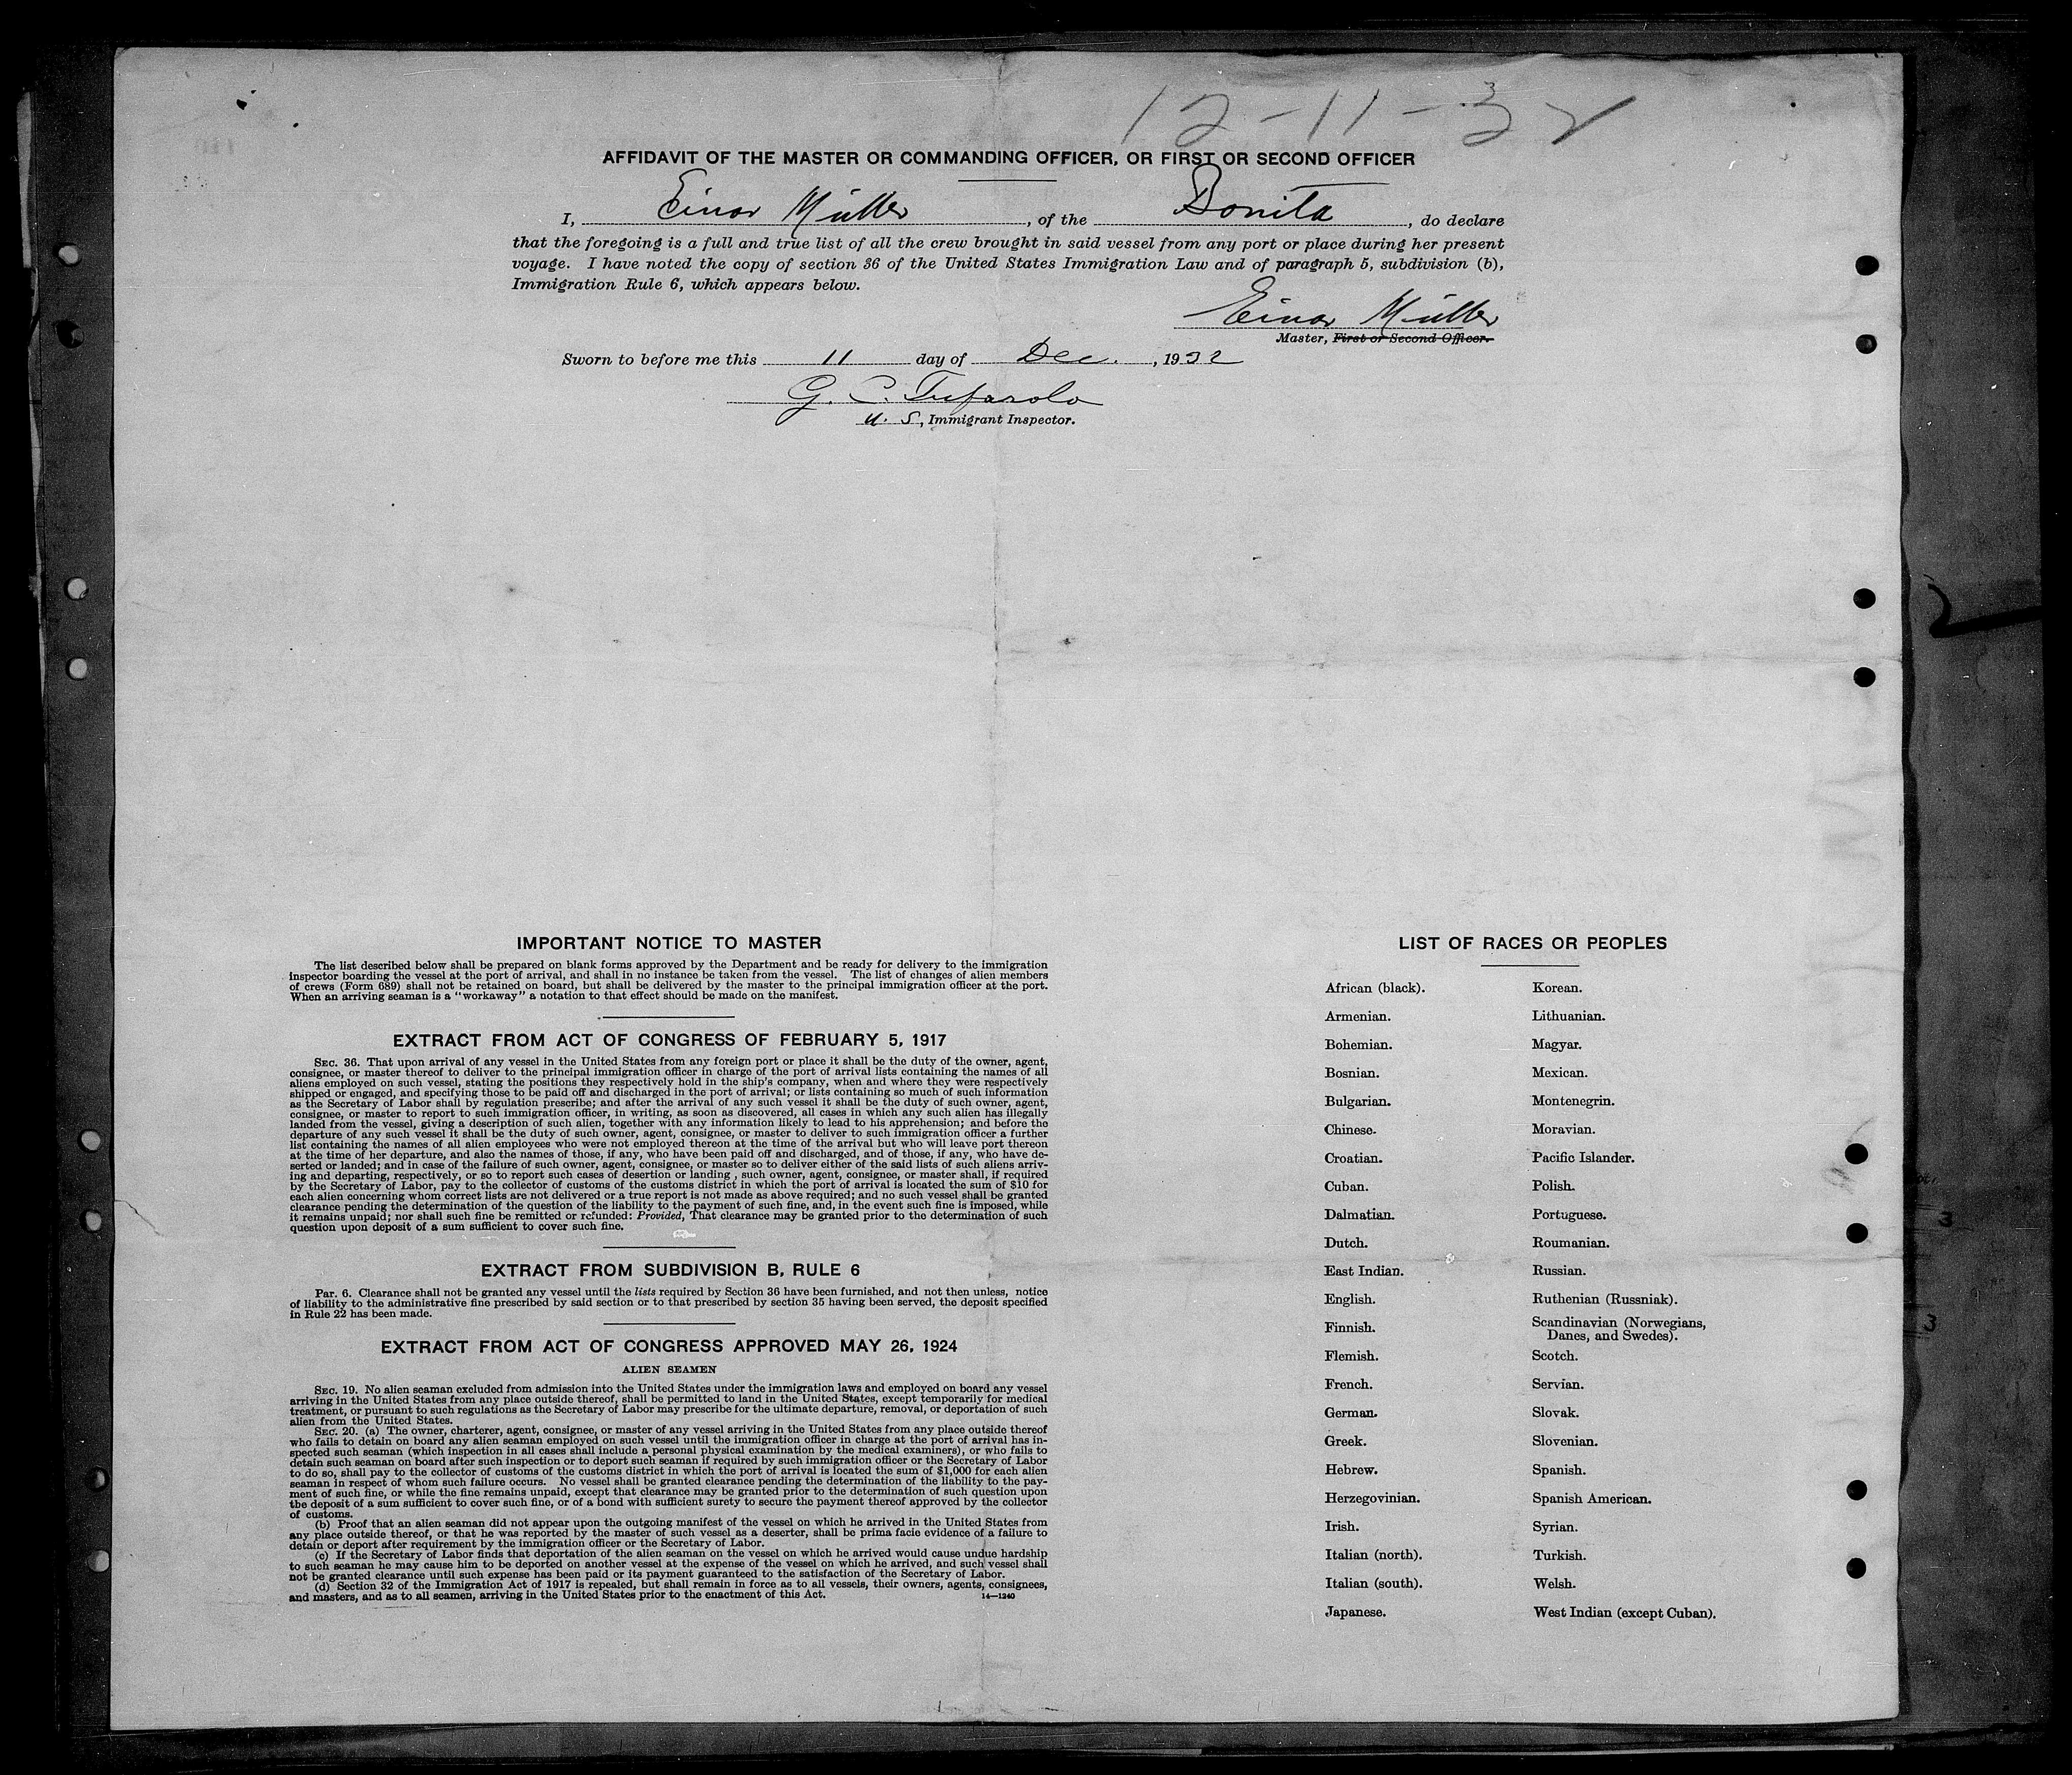 12-11-32
AFFIDAVIT OF THE MASTER OR COMMANDING OFFICER, OR FIRST OR SECOND OFFICER
I, Einar Müller, of the Bonita, do declare
that the foregoing is a full and true list of all the crew brought in said vessel from any port or place during her present
voyage. I have noted the copy of section 36 of the United States Immigration Law and of paragraph 5, subdivision (b),
Immigration Rule 6, which appears below.
Einar Müller
Master, First or Second Officer.
Sworn to before me this 11 day of Dec., 1932
G. C.
U. S., Immigrant Inspector.
IMPORTANT NOTICE TO MASTER
The list described below shall be prepared on blank forms approved by the Department and be ready for delivery to the immigration
inspector boarding the vessel at the port of arrival, and shall in no instance be taken from the vessel. The list of changes of alien members
of crews (Form 689) shall not be retained on board, but shall be delivered by the master to the principal immigration officer at the port.
When an arriving seaman is a "workaway" a notation to that effect should be made on the manifest.
EXTRACT FROM ACT OF CONGRESS OF FEBRUARY 5, 1917
SEC. 36. That upon arrival of any vessel in the United States from any foreign port or place it shall be the duty of the owner, agent,
consignee, or master thereof to deliver to the principal immigration officer in charge of the port of arrival lists containing the names of all
aliens employed on such vessel, stating the positions they respectively hold in the ship's company, when and where they were respectively
shipped or engaged, and specifying those to be paid off and discharged in the port of arrival; or lists containing so much of such information
as the Secretary of Labor shall by regulation prescribe; and after the arrival of any such vessel it shall be the duty of such owner, agent,
consignee, or master to report to such immigration officer, in writing, as soon as discovered, all cases in which any such alien has illegally
landed from the vessel, giving a description of such alien, together with any information likely to lead to his apprehension; and before the
departure of any such vessel it shall be the duty of such owner, agent, consignee, or master to deliver to such immigration officer a further
list containing the names of all alien employees who were not employed thereon at the time of the arrival but who will leave port thereon
at the time of her departure, and also the names of those, if any, who have been paid off and discharged, and of those, if any, who have de-
serted or landed; and in case of the failure of such owner, agent, consignee, or master so to deliver either of the said lists of such aliens arriv-
ing and departing, respectively, or so to report such cases of desertion or landing , such owner, agent, consignee, or master shall, if required
by the Secretary of Labor, pay to the collector of customs of the customs district in which the port of arrival is located the sum of $10 for
each alien concerning whom correct lists are not delivered or a true report is not made as above required; and no such vessel shall be granted
clearance pending the determination of the question of the liability to the payment of such fine, and, in the event such fine is imposed, while
it remains unpaid; nor shall such fine be remitted or refunded: Provided, That clearance may be granted prior to the determination of such
question upon deposit of a sum sufficient to cover such fine.
EXTRACT FROM SUBDIVISION B, RULE 6
Par. 6. Clearance shall not be granted any vessel until the lists required by Section 36 have been furnished, and not then unless, notice
of liability to the administrative fine prescribed by said section or to that prescribed by section 35 having been served, the deposit specified
in Rule 22 has been made.
EXTRACT FROM ACT OF CONGRESS APPROVED MAY 26, 1924
ALIEN SEAMEN
SEC. 19. No alien seaman excluded from admission into the United States under the immigration laws and employed on board any vessel
arriving in the United States from any place outside thereof, shall be permitted to land in the United States, except temporarily for medical
treatment, or pursuant to such regulations as the Secretary of Labor may prescribe for the ultimate departure, removal, or deportation of such
alien from the United States.
SEC. 20. (a) The owner, charterer, agent, consignee, or master of any vessel arriving in the United States from any place outside thereof
who fails to detain on board any alien seaman employed on such vessel until the immigration officer in charge at the port of arrival has in-
spected such seaman (which inspection in all cases shall include a personal physical examination by the medical examiners), or who fails to
detain such seaman on board after such inspection or to deport such seaman if required by such immigration officer or the Secretary of Labor
to do so, shall pay to the collector of customs of the customs district in which the port of arrival is located the sum of $1,000 for each alien
seaman in respect of whom such failure occurs. No vessel shall be granted clearance pending the determination of the liability to the pay-
ment of such fine, or while the fine remains unpaid, except that clearance may be granted prior to the determination of such question upon
the deposit of a sum sufficient to cover such fine, or of a bond with sufficient surety to secure the payment thereof approved by the collector
of customs.
(b) Proof that an alien seaman did not appear upon the outgoing manifest of the vessel on which he arrived in the United States from
any place outside thereof, or that he was reported by the master of such vessel as a deserter, shall be prima facie evidence of a failure to
detain or deport after requirement by the immigration officer or the Secretary of Labor.
(c) If the Secretary of Labor finds that deportation of the alien seaman on the vessel on which he arrived would cause undue hardship
to such seaman he may cause him to be deported on another vessel at the expense of the vessel on which he arrived, and such vessel shall
not be granted clearance until such expense has been paid or its payment guaranteed to the satisfaction of the Secretary of Labor.
(d) Section 32 of the Immigration Act of 1917 is repealed, but shall remain in force as to all vessels, their owners, agents, consignees,
and masters, and as to all seamen, arriving in the United States prior to the enactment of this Act.
14—1240
LIST OF RACES OR PEOPLES
African (black).
Armenian.
Bohemian.
Bosnian.
Bulgarian.
Chinese.
Croatian.
Cuban.
Dalmatian.
Dutch.
East Indian.
English.
Finnish.
Flemish.
French.
German.
Greek.
Hebrew.
Herzegovinian.
Irish.
Italian (north).
Italian (south).
Japanese.
Korean.
Lithuanian.
Magyar.
Mexican.
Montenegrin.
Moravian.
Pacific Islander.
Polish.
Portuguese.
Roumanian.
Russian.
Ruthenian (Russniak).
Scandinavian (Norwegians,
Danes, and Swedes).
Scotch.
Servian.
Slovak.
Slovenian.
Spanish.
Spanish American.
Syrian.
Turkish.
Welsh.
West Indian (except Cuban).
2
3
3